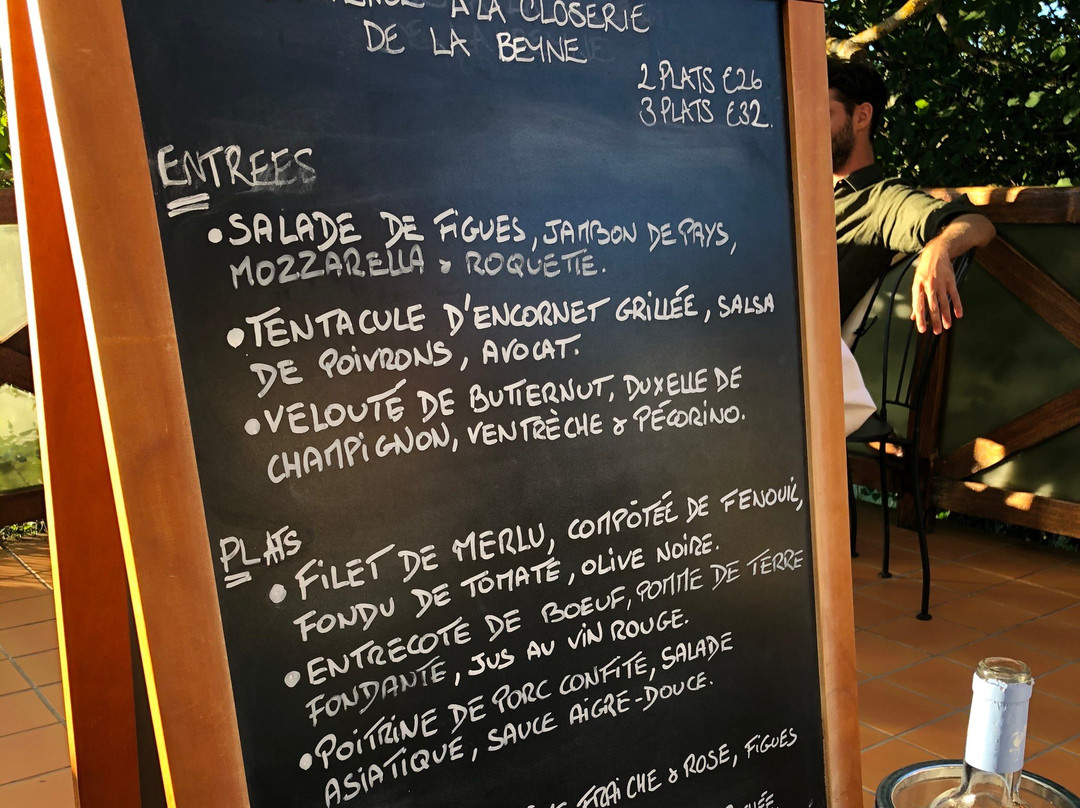 A LA CLOSERIE
DE LA BEYNE
2 PLATS €26
3 PLATS €32.
ENTREES
• SALADE DE FIGUES, JAMBON DE PAYS,
MOZZARELLA & ROQUETTE.
• TENTACULE D'ENCORNET GRILLÉE, SALSA
DE POIVRONS, AVOCAT.
• VELOUTÉ DE BUTTERNUT, DUXELLE DE
CHAMPIGNON, VENTRÈCHE & PÉCORINO.
PLATS
• FILET DE MERLU, COMPÔTÉE DE FENOUIL,
FONDU DE TOMATE, OLIVE NOIRE.
• ENTRECOTE DE BOEUF, POMME DE TERRE
FONDANTE, JUS AU VIN ROUGE.
• POITRINE DE PORC CONFITE, SALADE
ASIATIQUE, SAUCE AIGRE-DOUCE.
FRAICHE & ROSE, FIGUES